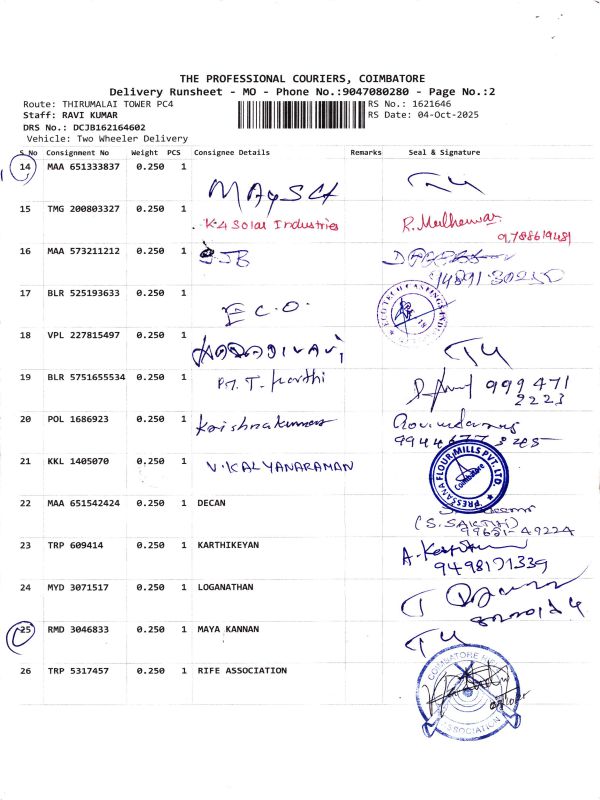 THE PROFESSIONAL COURIERS, COIMBATORE
Delivery Runsheet - MO - Phone No.:9047080280 - Page No.:2
Route: THIRUMALAI TOWER PC4 RS No.: 1621646
Staff: RAVI KUMAR RS Date: 04-Oct-2025
DRS No.: DCJB162164602
Vehicle: Two Wheeler Delivery
S No Consignment No Weight PCS Consignee Details Remarks Seal & Signature
14 MAA 651333837 0.250 1
15 TMG 200803327 0.250 1 K-4 Solar Industries
16 MAA 573211212 0.250 1
17 BLR 525193633 0.250 1 E.C.O.
18 VPL 227815497 0.250 1
19 BLR 5751655534 0.250 1 999 471
2223
20 POL 1686923 0.250 1 Krishnakumar
21 KKL 1405070 0.250 1 V.KALYANARAMAN PRESSANA FLOUR MILLS PVT. LTD.
Coimbatore
22 MAA 651542424 0.250 1 DECAN
(S. SAKTHI)
99651-49224
23 TRP 609414 0.250 1 KARTHIKEYAN
9498171339
24 MYD 3071517 0.250 1 LOGANATHAN
25 RMD 3046833 0.250 1 MAYA KANNAN
26 TRP 5317457 0.250 1 RIFE ASSOCIATION COIMBATORE
ASSOCIATION